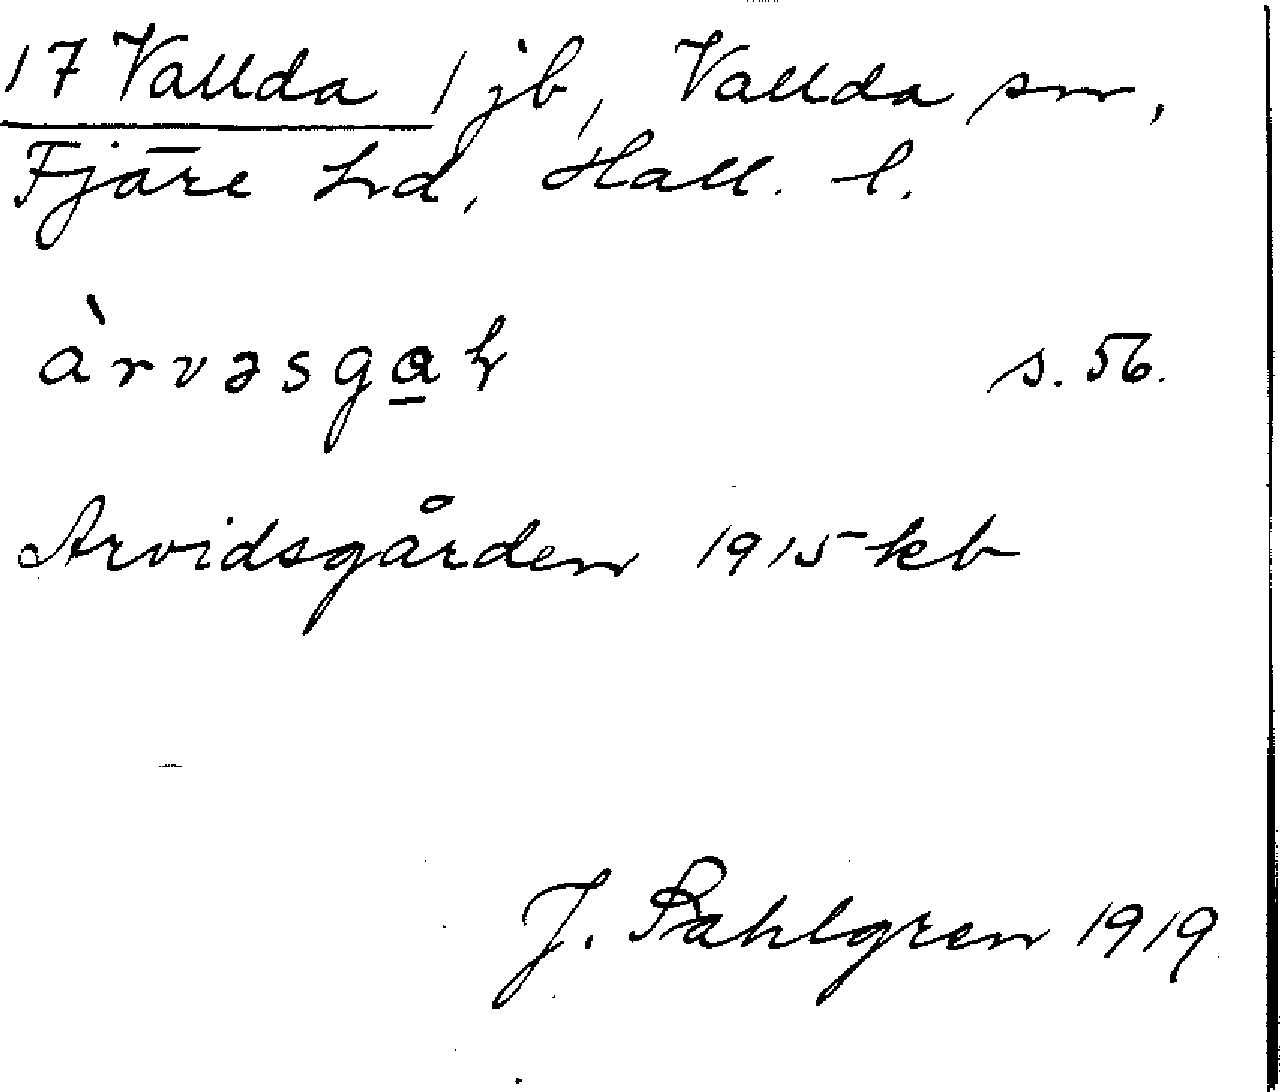 17 Vallda 1 jb, Vallda sn,
Fjäre hd, Hall. l.
àrvəsga̲ɽ s. 56.
Arvidsgården 1915 kb
J. Sahlgren 1919